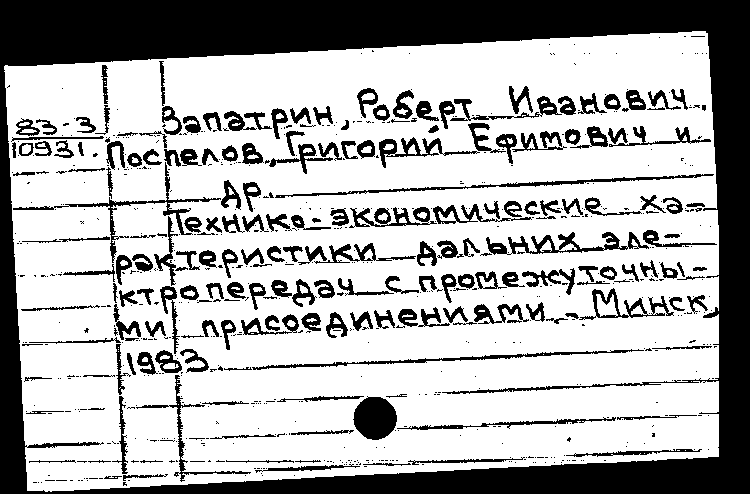 83-3
10931.
Запатрин, Роберт Иванович.
Поспелов, Григорий Ефимович и
др.
Технико-экономические ха-
рактеристики дальних эле-
ктропередач с промежуточны-
ми присоединениями. - Минск,
1983.